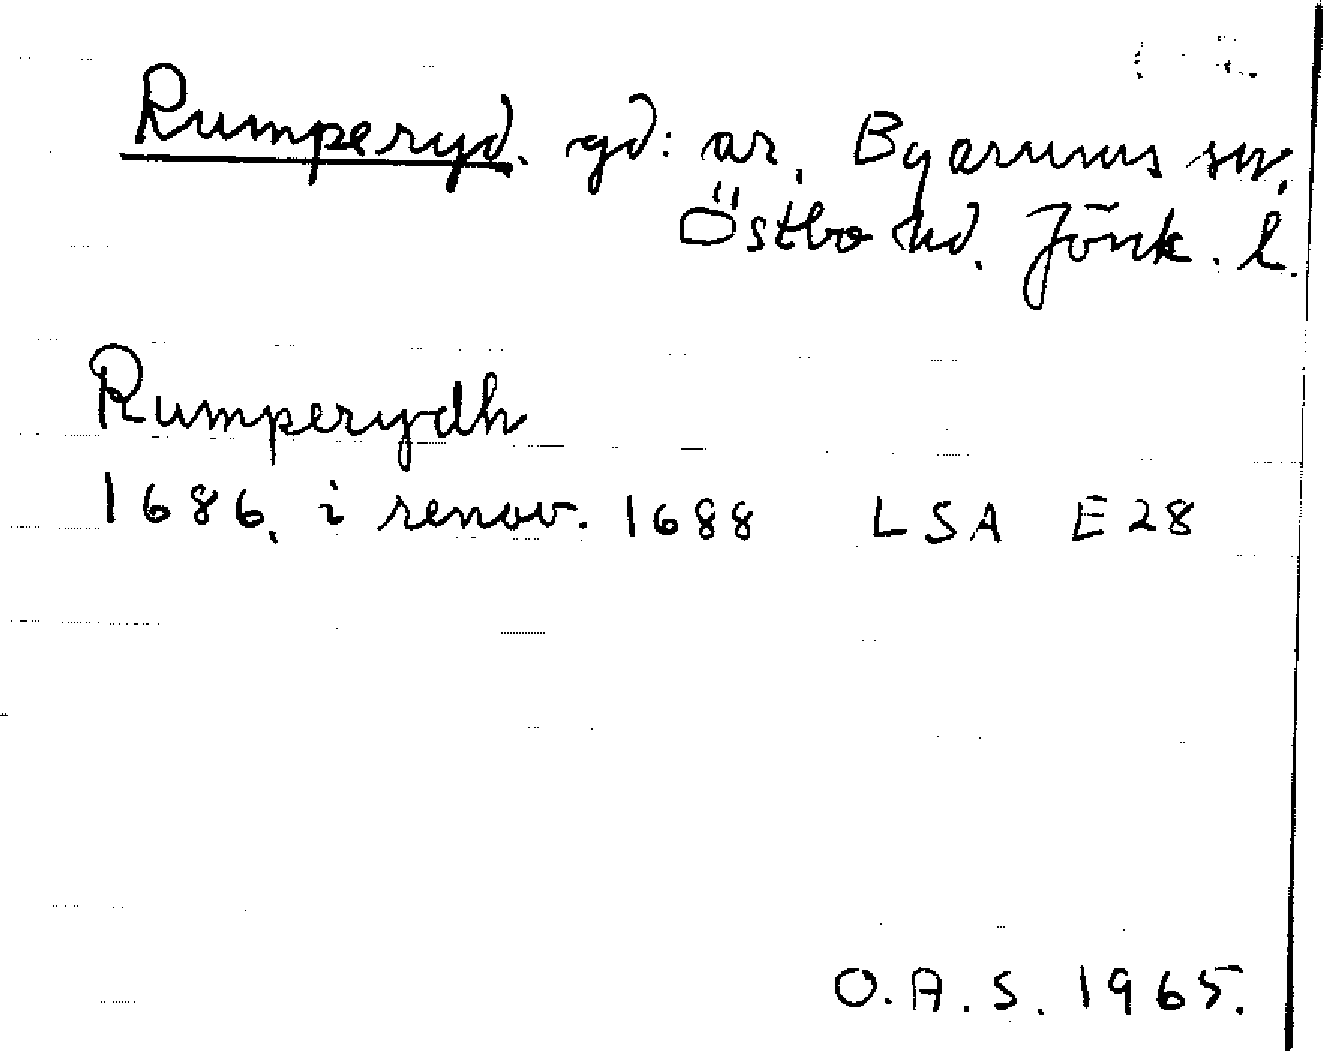 Rumperyd. gd: ar, Byarums sn.
Östbo hd. Jönk. l.
Rumperydh
1686, i renov. 1688 LSA E28
O.A.S. 1965.